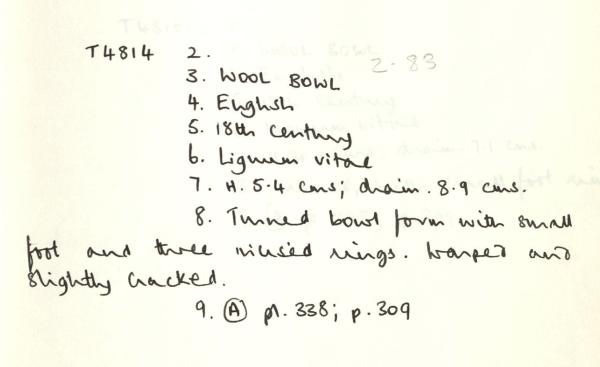 T4814 2.
3. WOOL BOWL 2.83
4. English
5. 18th Century
6. Lignum vitae
7. H. 5.4 cms; diam. 8.9 cms.
8. Turned bowl form with small
foot and three incised rings. Warped and
slightly cracked.
9. (A) pl. 338; p. 309